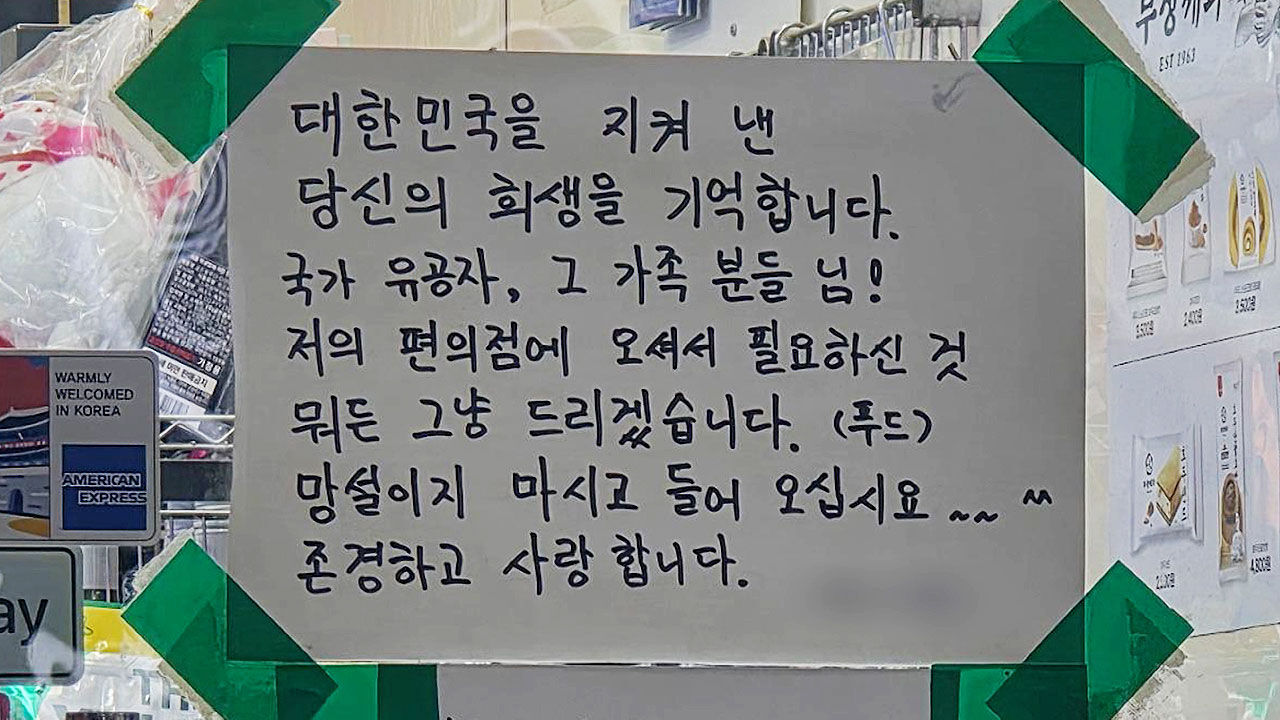 대한민국을 지켜 낸
당신의 희생을 기억합니다.
국가 유공자, 그 가족 분들 님!
저의 편의점에 오셔서 필요하신 것
뭐든 그냥 드리겠습니다. (푸드)
망설이지 마시고 들어 오십시요 ~~ ^^
존경하고 사랑합니다.
WARMLY
WELCOMED
IN KOREA
AMERICAN
EXPRESS
ay
EST 1963
2,500원
2,400원
3,500원
4,800원